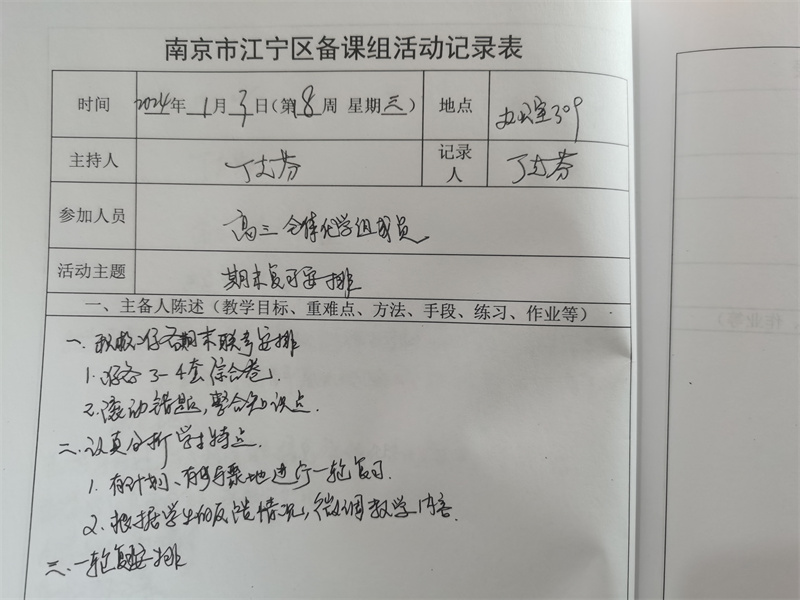 南京市江宁区备课组活动记录表
时间 2024年1月3日(第18周 星期三) 地点 办公室309
主持人 丁志芬 记录人 丁志芬
参加人员 高三全体化学组成员
活动主题 期末复习安排
一、主备人陈述(教学目标、重难点、方法、手段、练习、作业等)
一. 积极准备期末联考安排
1. 准备3-4套综合卷.
2. 滚动错题,整合知识点.
二. 认真分析学生特点.
1. 有计划、有步骤地进行一轮复习.
2. 根据学生的反馈情况,微调教学内容.
三. 一轮复习安排